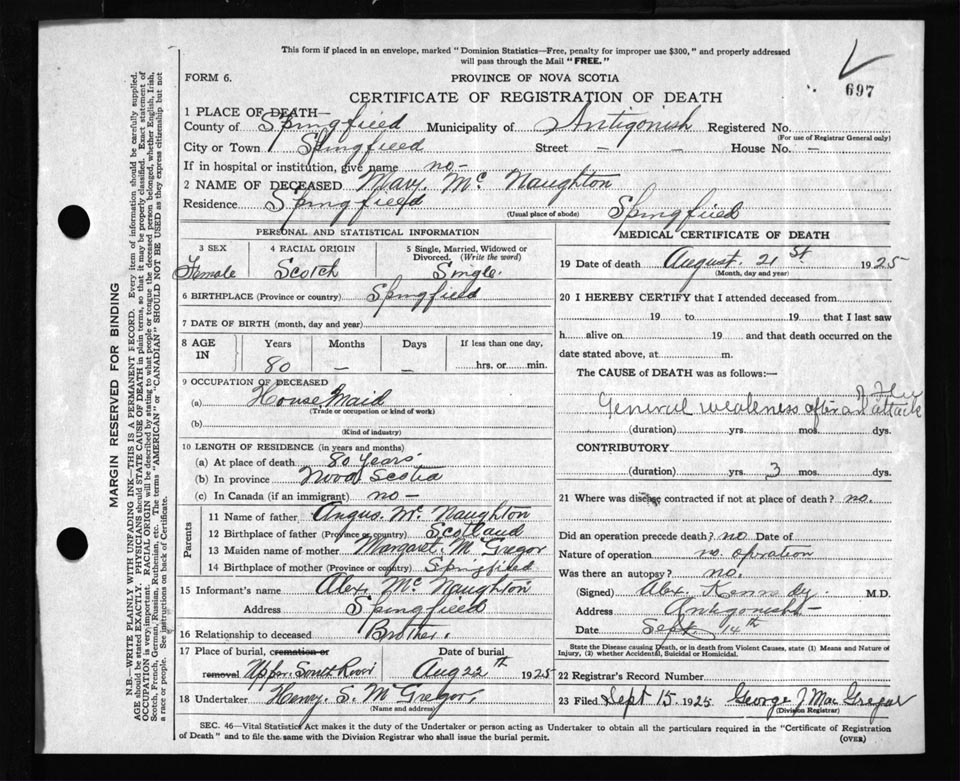 This form if placed in an envelope, marked "Dominion Statistics—Free, penalty for improper use $300," and properly addressed
will pass through the Mail "FREE."
FORM 6.
PROVINCE OF NOVA SCOTIA
697
CERTIFICATE OF REGISTRATION OF DEATH
1 PLACE OF DEATH—
County of Springfield Municipality of Antigonish Registered No.
(For use of Registrar General only)
City or Town Springfield Street — — House No. —
If in hospital or institution, give name no—
2 NAME OF DECEASED Mary. Mc Naughton
Residence Springfield Springfield
(Usual place of abode)
PERSONAL AND STATISTICAL INFORMATION
3 SEX 4 RACIAL ORIGIN 5 Single, Married, Widowed or Divorced. (Write the word)
Female Scotch Single.
6 BIRTHPLACE (Province or country) Springfield
7 DATE OF BIRTH (month, day and year)
8 AGE IN Years Months Days If less than one day,
80 — — hrs. or min.
9 OCCUPATION OF DECEASED
(a) House Maid
(Trade or occupation or kind of work)
(b)
(Kind of industry)
10 LENGTH OF RESIDENCE (in years and months)
(a) At place of death 80 years
(b) In province Nova Scotia
(c) In Canada (if an immigrant) no —
Parents
11 Name of father Angus. Mc Naughton
12 Birthplace of father (Province or country) Scotland
13 Maiden name of mother Margaret. Mc Gregor
14 Birthplace of mother (Province or country) Springfield
15 Informant's name Alex. Mc Naughton
Address Springfield
16 Relationship to deceased Brother.
17 Place of burial, cremation or removal Date of burial
Upper South River Aug 22th 1925
18 Undertaker Henry. S. McGregor,
(Name and address)
MEDICAL CERTIFICATE OF DEATH
19 Date of death August. 21st 1925
(Month, day and year)
20 I HEREBY CERTIFY that I attended deceased from
19 to 19 that I last saw
h alive on 19 and that death occurred on the
date stated above, at m.
The CAUSE of DEATH was as follows:—
General weakness after an attack of Flu
(duration) yrs. mos. dys.
CONTRIBUTORY
(duration) yrs. 3 mos. dys.
21 Where was disease contracted if not at place of death? no.
Did an operation precede death? no Date of
Nature of operation no opration
Was there an autopsy? no.
(Signed) Alex. Kennedy. M.D.
Address Antigonish
Date Sept. 14th
State the Disease causing Death, or in death from Violent Causes, state (1) Means and Nature of
Injury, (2) whether Accidental, Suicidal or Homicidal.
22 Registrar's Record Number
23 Filed Sept 15. 1925. George J MacGregor
(Division Registrar)
SEC. 46—Vital Statistics Act makes it the duty of the Undertaker or person acting as Undertaker to obtain all the particulars required in the "Certificate of Registration
of Death" and to file the same with the Division Registrar who shall issue the burial permit.
(OVER)
MARGIN RESERVED FOR BINDING
N.B.—WRITE PLAINLY WITH UNFADING INK—THIS IS A PERMANENT RECORD. Every item of information should be carefully supplied.
AGE should be stated EXACTLY. PHYSICIANS should STATE CAUSE OF DEATH in plain terms, so that it may be properly classified. Exact statement of
OCCUPATION is very important. RACIAL ORIGIN will be described by stating to what people or tongue the deceased person belonged, whether English, Irish,
Scotch, French, German, Russian, Ruthenian, etc. The terms "AMERICAN" or "CANADIAN" SHOULD NOT BE USED as they express citizenship but not
a race or people. See instructions on back of Certificate.